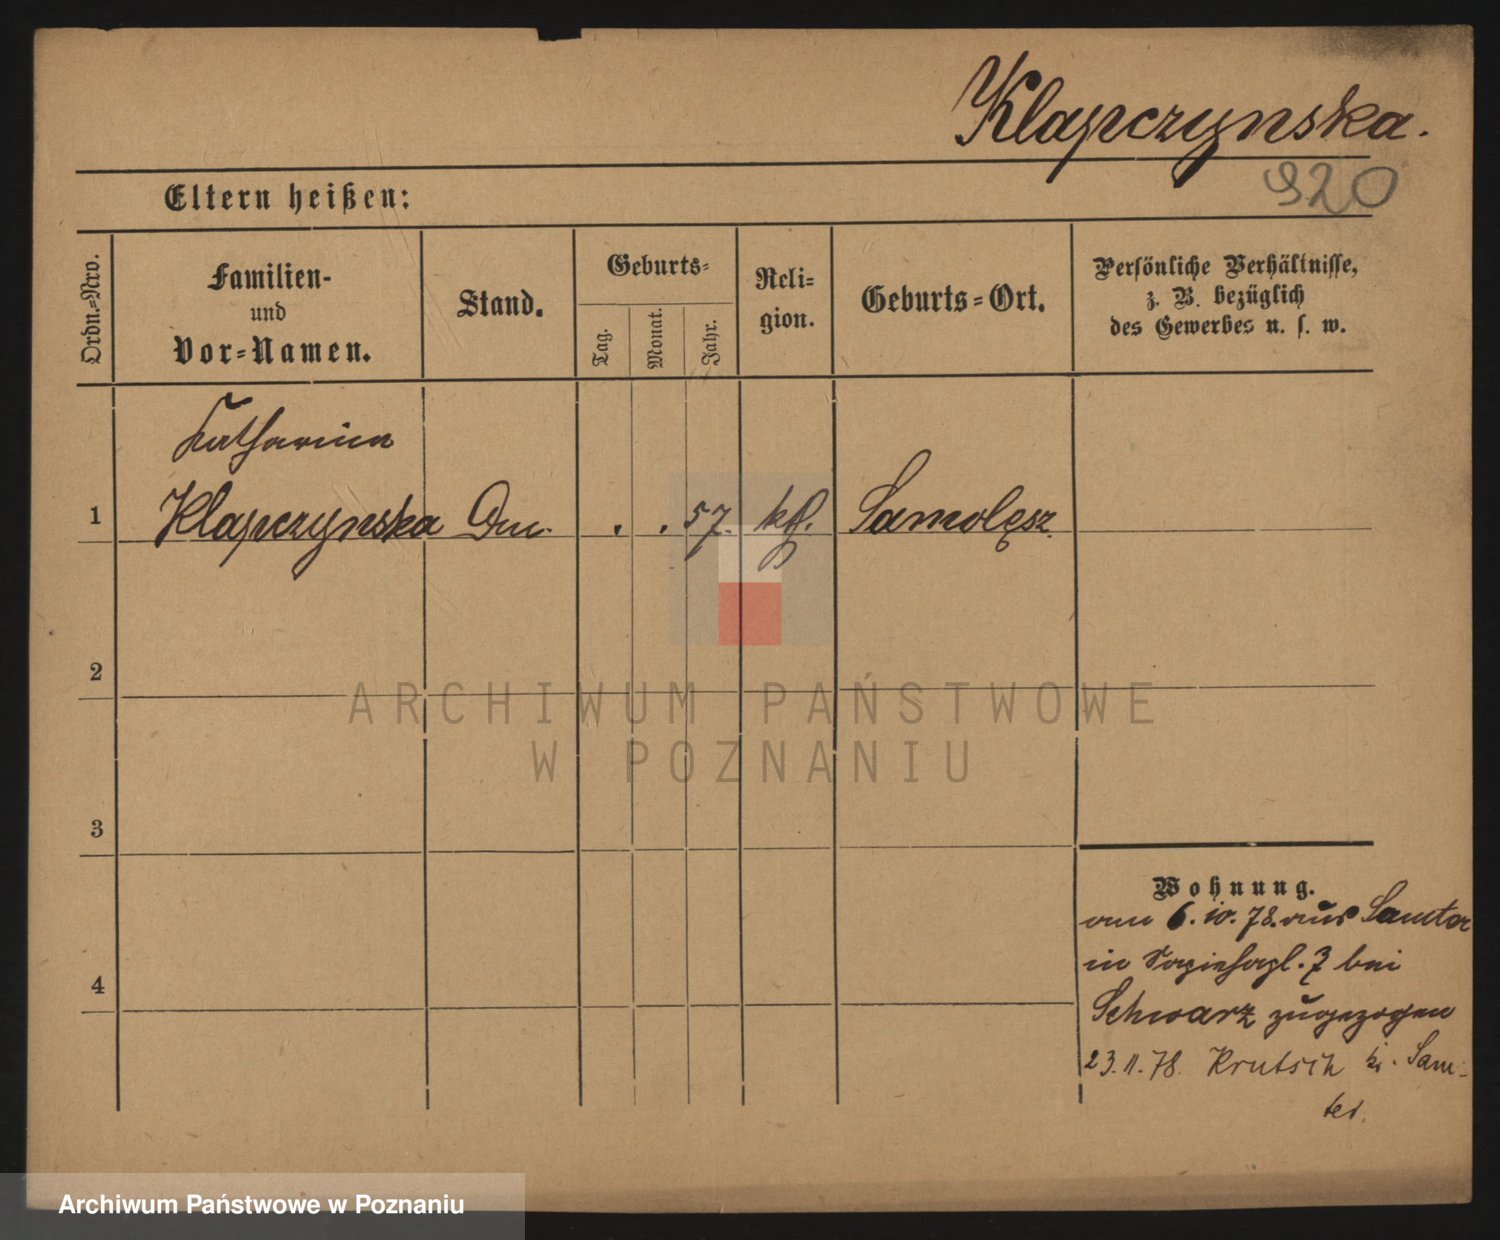 Klapczynska.
920
Eltern heißen:
Ordn.=Nro.
Familien-
und
Vor=Namen.
Stand.
Geburts=
Tag.
Monat.
Jahr.
Reli=
gion.
Geburts=Ort.
Persönliche Verhältnisse,
z. B. bezüglich
des Gewerbes u. s. w.
Catharina
1 Klapczynska . . 57. kth. Samolęsz.
2
3
4
Wohnung.
am 6. 10. 78. aus Samter
in bei
Schwarz zugezogen
23.11.78. Krutsch Kr. Sam-
ter.
ARCHIWUM PAŃSTWOWE
W POZNANIU
Archiwum Państwowe w Poznaniu